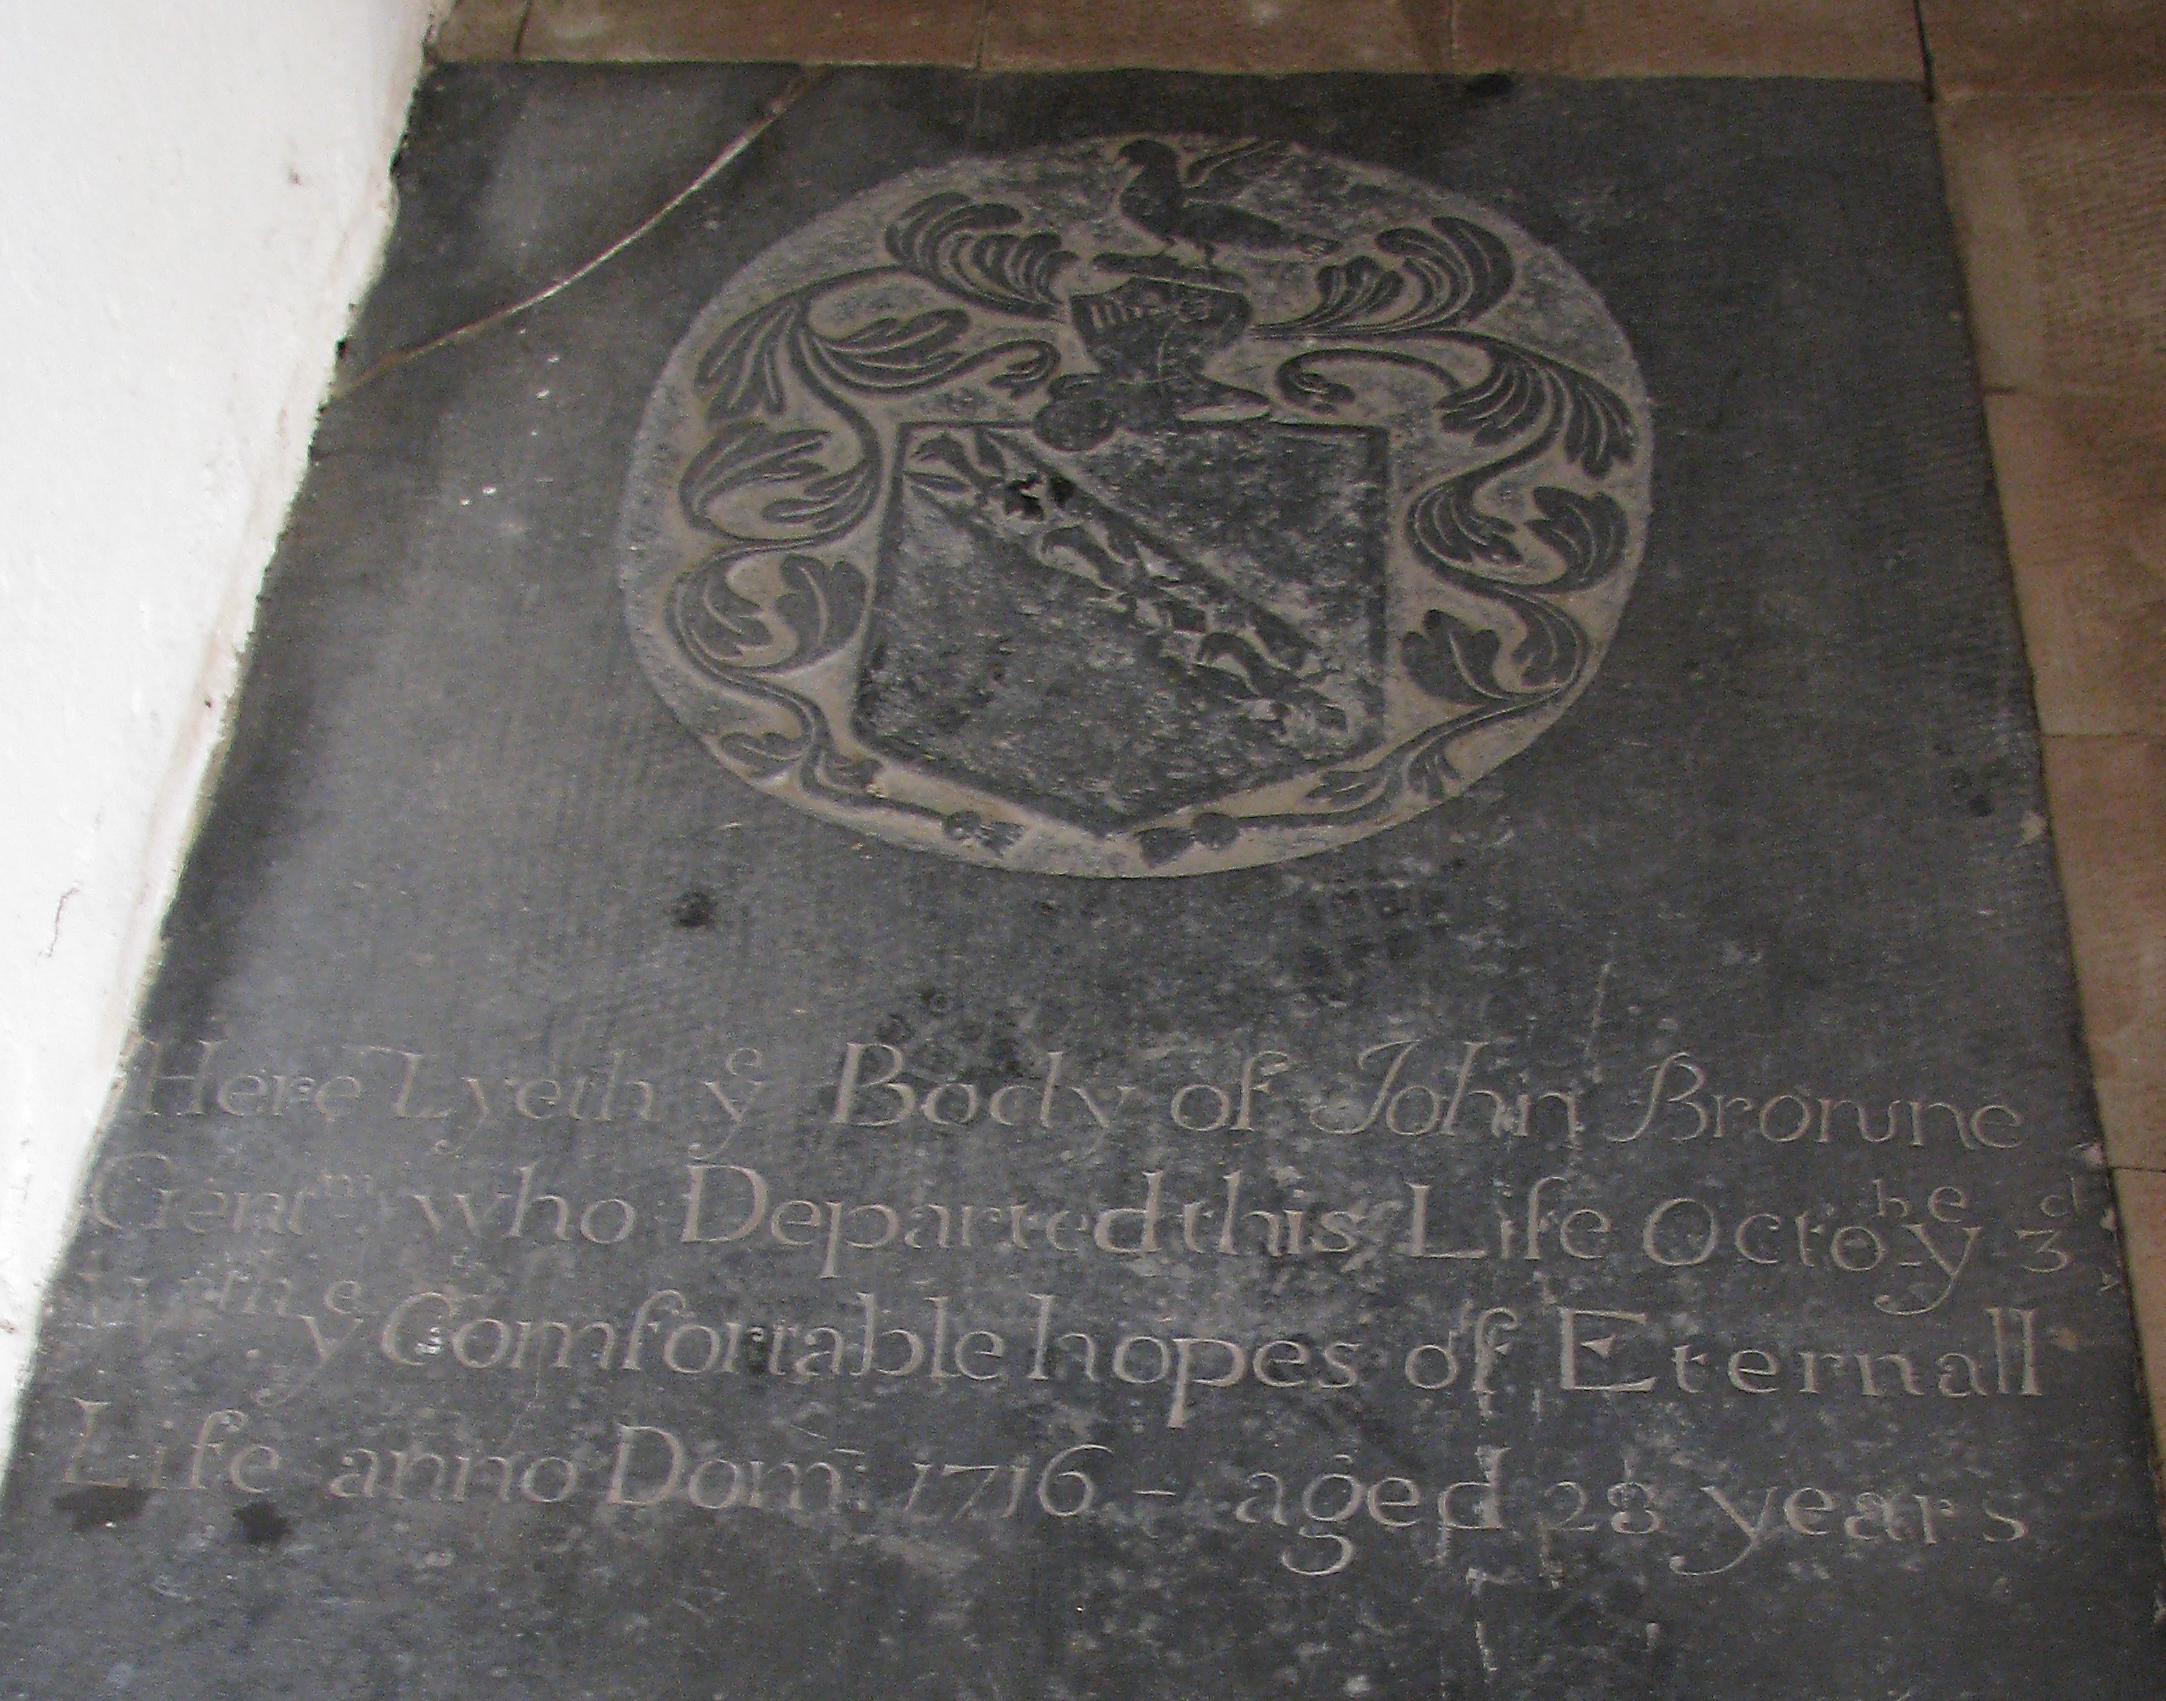 Here Lyeth yᵉ Body of John Browne
Gentᵐ who Departed this Life Octobʰ yᵉ 3ᵈ
Wᵗʰ yᵉ Comfortable hopes of Eternall
Life anno Dom: 1716 - aged 23 years